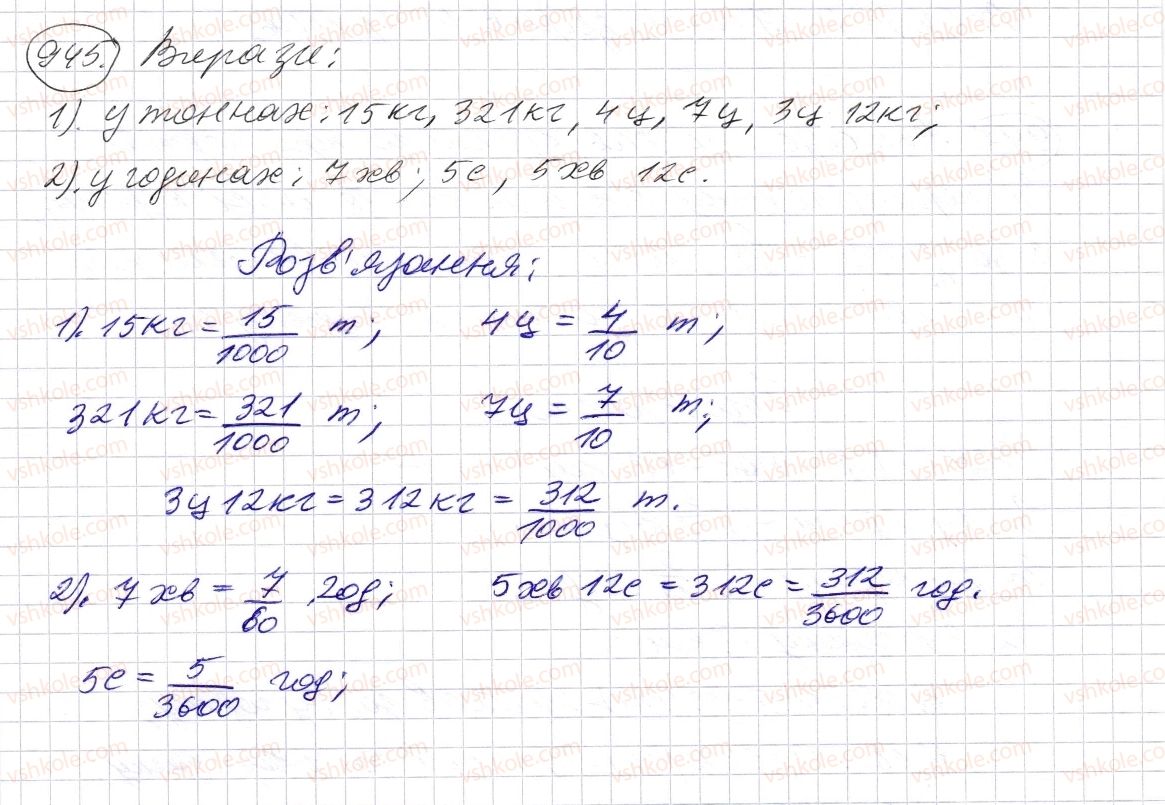 945. Вирази:
1). у тоннах: 15кг, 321кг, 4ц, 7ц, 3ц 12кг;
2). у годинах: 7хв; 5с, 5хв 12с.
Розв'язання:
1). 15кг = 15/1000 т; 4ц = 4/10 т;
321кг = 321/1000 т; 7ц = 7/10 т;
3ц 12кг = 312кг = 312/1000 т.
2). 7хв = 7/60 год; 5хв 12с = 312с = 312/3600 год.
5с = 5/3600 год;